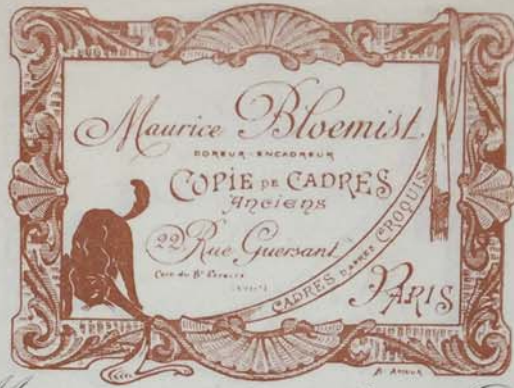 Maurice Bloemist
DOREUR-ENCADREUR
COPIE DE CADRES
Anciens
22 Rue Guersant
Coin du Bd
CADRES D'APRÈS CROQUIS
PARIS